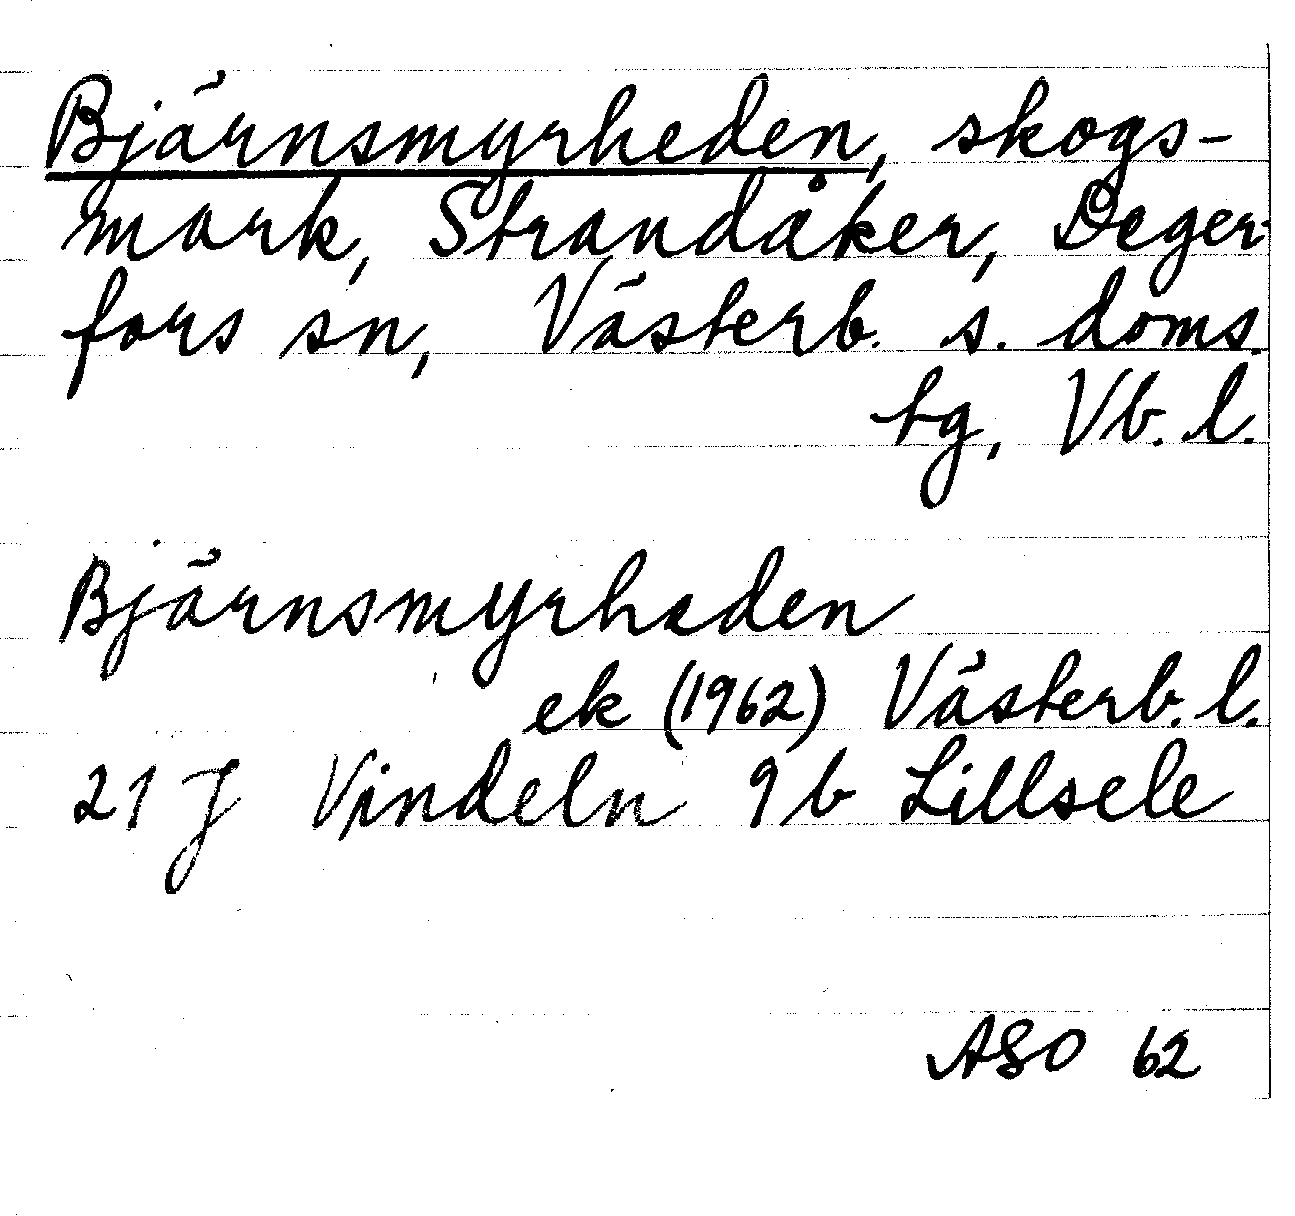 Bjärnsmyrheden, skogs-
mark, Strandåker, Deger-
fors sn, Västerb. s. doms.
tg, Vb. l.
Bjärnsmyrheden
ek (1962) Västerb. l.
21 J Vindeln 9b Lillsele
ASO 62